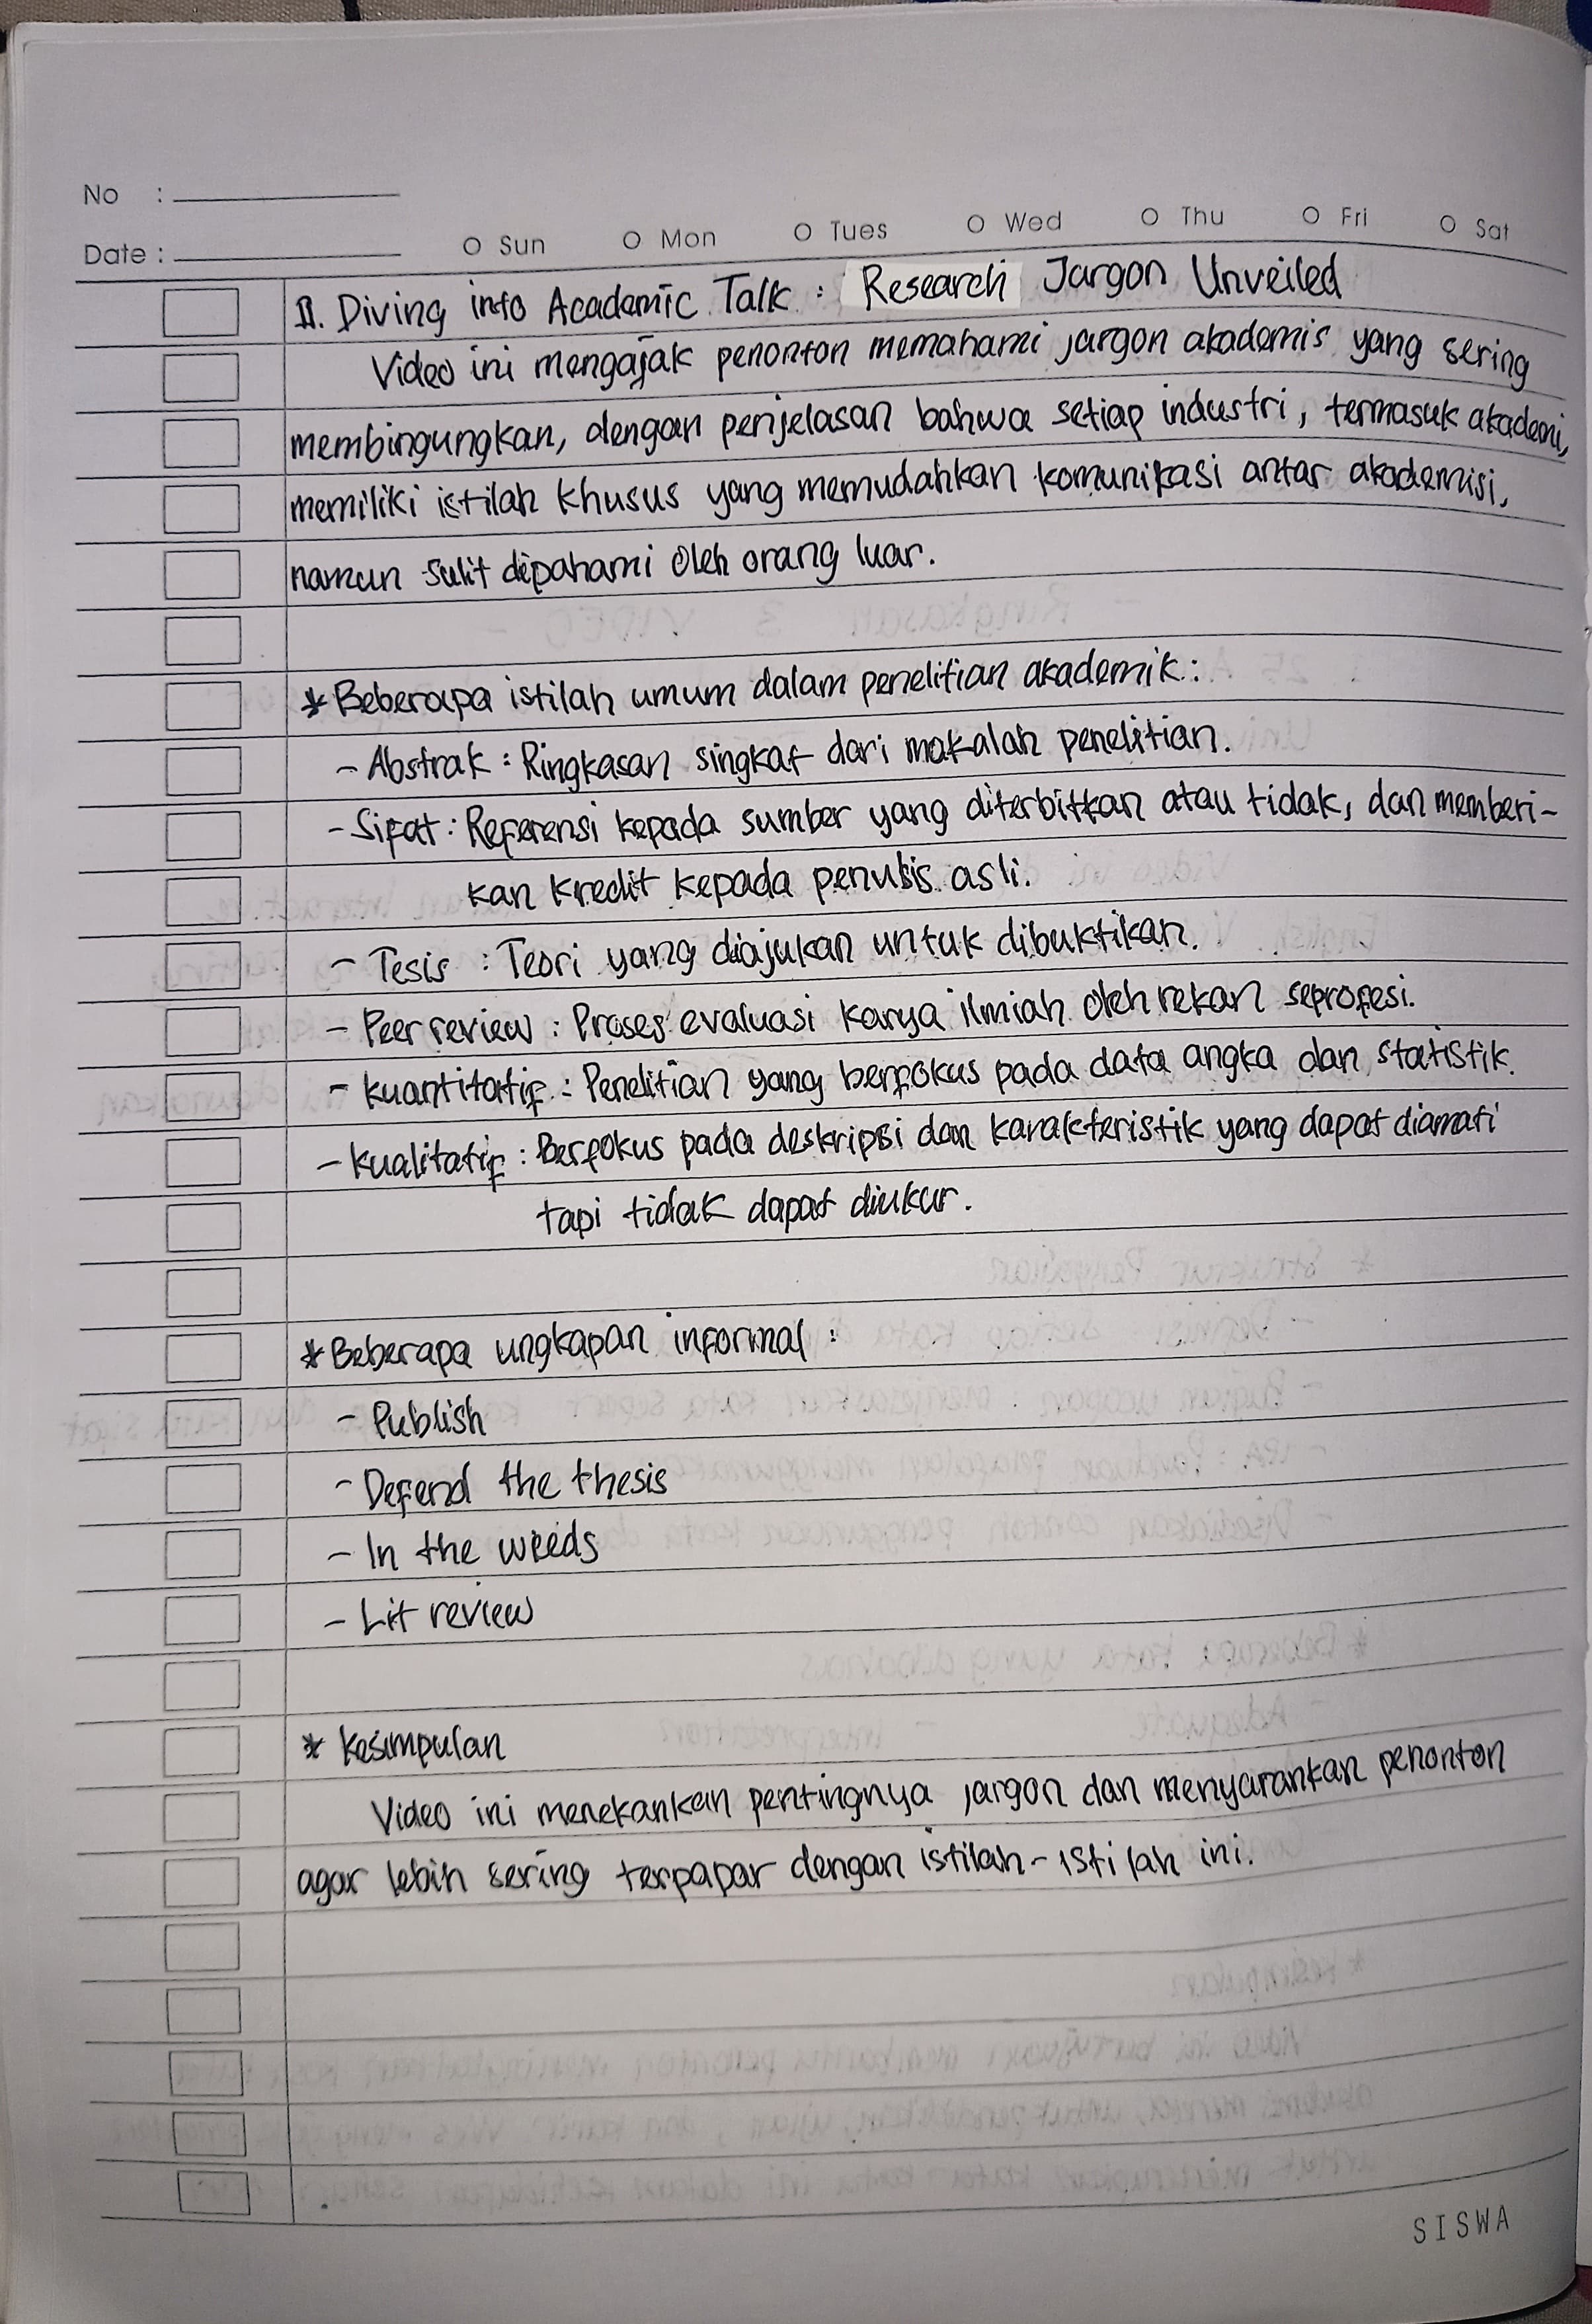 No :
Date :
Sun Mon Tues Wed Thu Fri Sat
II. Diving into Academic Talk : Research Jargon Unveiled
Video ini mengajak penonton memahami jargon akademis yang sering
membingungkan, dengan penjelasan bahwa setiap industri, termasuk akademi,
memiliki istilah khusus yang memudahkan komunikasi antar akademisi,
namun sulit dipahami oleh orang luar.
* Beberapa istilah umum dalam penelitian akademik :
- Abstrak : Ringkasan singkat dari makalah penelitian.
- Sifat : Referensi kepada sumber yang diterbitkan atau tidak, dan memberi-
kan kredit kepada penulis asli.
- Tesis : Teori yang diajukan untuk dibuktikan.
- Peer review : Proses evaluasi karya ilmiah oleh rekan seprofesi.
- Kuantitatif : Penelitian yang berfokus pada data angka dan statistik.
- Kualitatif : Berfokus pada deskripsi dan karakteristik yang dapat diamati
tapi tidak dapat diukur.
* Beberapa ungkapan informal :
- Publish
- Defend the thesis
- In the weeds
- Lit review
* Kesimpulan
Video ini menekankan pentingnya jargon dan menyarankan penonton
agar lebih sering terpapar dengan istilah-istilah ini.
SISWA